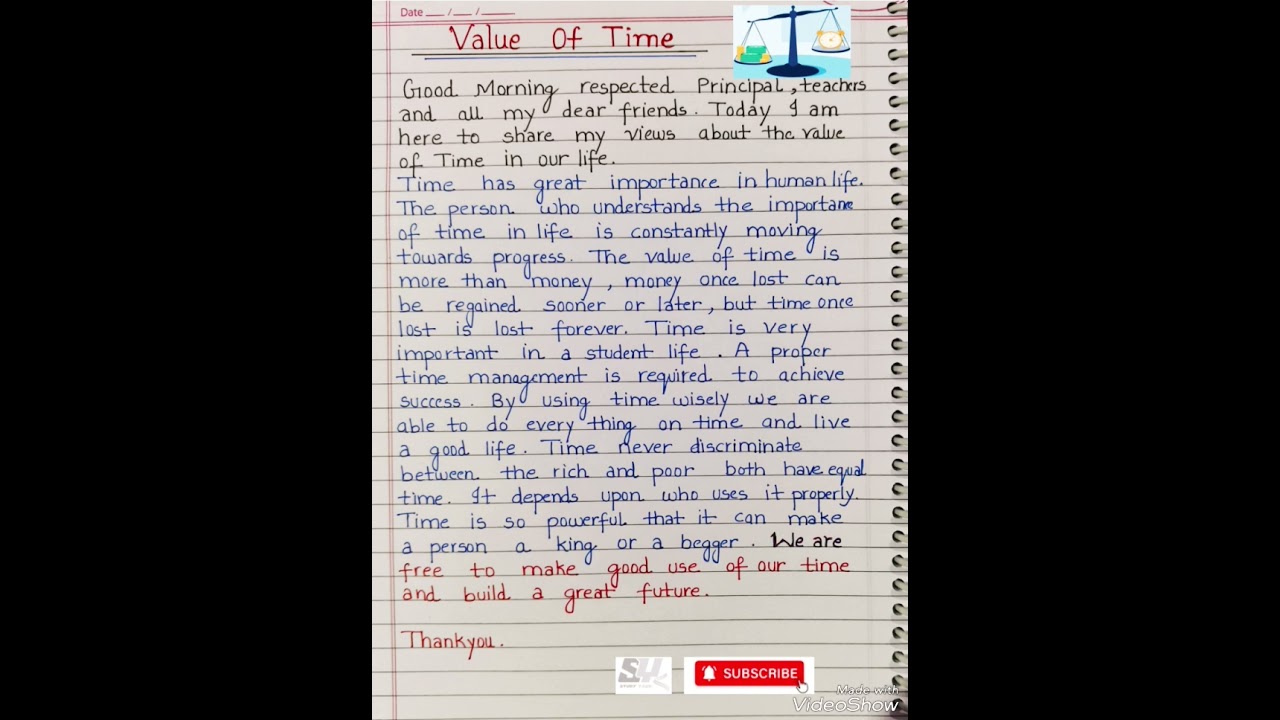 Date __/__/__
Value Of Time
Good Morning respected Principal, teachers
and all my dear friends. Today I am
here to share my views about the value
of Time in our life.
Time has great importance in human life.
The person who understands the importane
of time in life is constantly moving
towards progress. The value of time is
more than money, money once lost can
be regained sooner or later, but time once
lost is lost forever. Time is very
important in a student life. A proper
time management is required to achieve
success. By using time wisely we are
able to do every thing on time and live
a good life. Time never discriminate
between the rich and poor both have equal
time. It depends upon who uses it properly.
Time is so powerful that it can make
a person a king or a begger. We are
free to make good use of our time
and build a great future.
Thankyou.
SUBSCRIBE
Made with
VideoShow